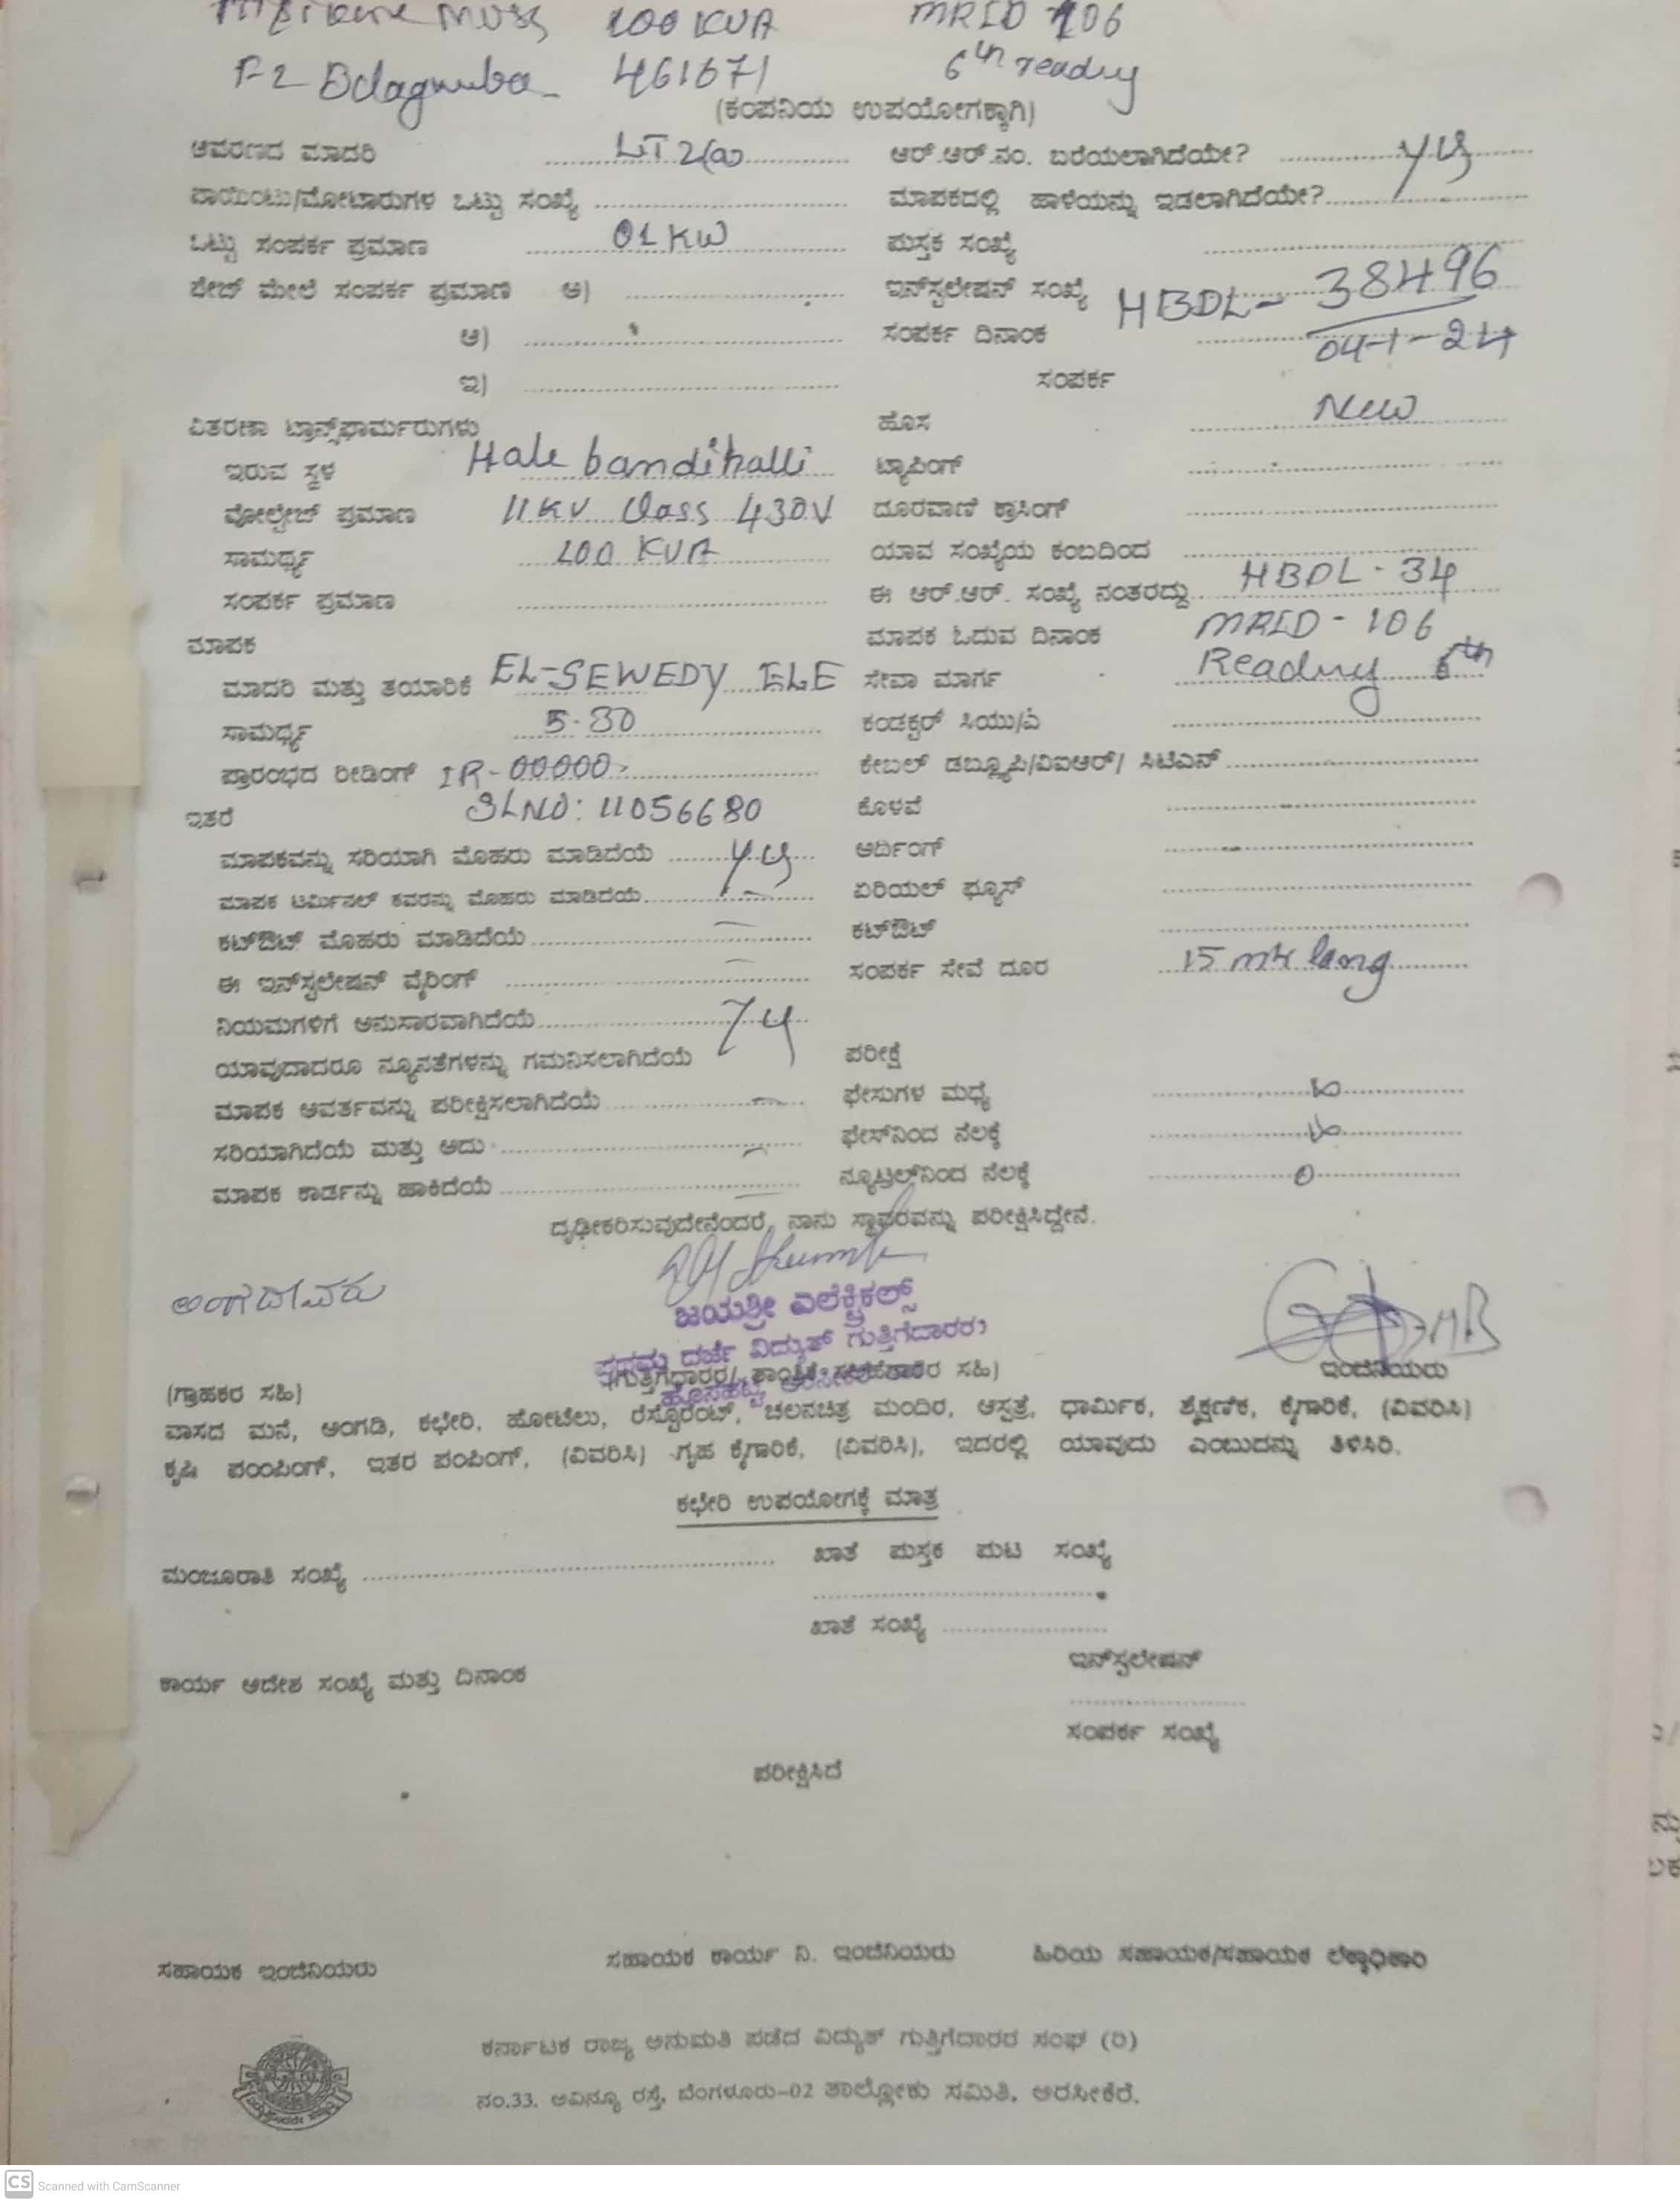 MUSS 100 KVA MRID 106
F2 Belagumba 461671 6th reading
(ಕಂಪನಿಯ ಉಪಯೋಗಕ್ಕಾಗಿ)
ಆವರಣದ ಮಾದರಿ LT 2(a) ಆರ್.ಆರ್.ನಂ. ಬರೆಯಲಾಗಿದೆಯೇ? yes
ಪಾಯಿಂಟು/ಮೋಟಾರುಗಳ ಒಟ್ಟು ಸಂಖ್ಯೆ ಮಾಪಕದಲ್ಲಿ ಹಾಳೆಯನ್ನು ಇಡಲಾಗಿದೆಯೇ?
ಒಟ್ಟು ಸಂಪರ್ಕ ಪ್ರಮಾಣ 01 KW ಪುಸ್ತಕ ಸಂಖ್ಯೆ
ಪೇಜ್ ಮೇಲೆ ಸಂಪರ್ಕ ಪ್ರಮಾಣ ಅ) ಇನ್‌ಸ್ಟಲೇಷನ್ ಸಂಖ್ಯೆ HBDL- 38496
ಆ) ಸಂಪರ್ಕ ದಿನಾಂಕ 04-1-24
ಇ) ಸಂಪರ್ಕ
ವಿತರಣಾ ಟ್ರಾನ್ಸ್‌ಫಾರ್ಮರುಗಳು ಹೊಸ New
ಇರುವ ಸ್ಥಳ Hale bandihalli ಟ್ಯಾಪಿಂಗ್
ವೋಲ್ಟೇಜ್ ಪ್ರಮಾಣ 11 KV Class 430V ದೂರವಾಣಿ ಕ್ರಾಸಿಂಗ್
ಸಾಮರ್ಥ್ಯ 100 KVA ಯಾವ ಸಂಖ್ಯೆಯ ಕಂಬದಿಂದ
ಸಂಪರ್ಕ ಪ್ರಮಾಣ ಈ ಆರ್.ಆರ್. ಸಂಖ್ಯೆ ನಂತರದ್ದು HBDL - 34
ಮಾಪಕ ಮಾಪಕ ಓದುವ ದಿನಾಂಕ MRID - 106
ಮಾದರಿ ಮತ್ತು ತಯಾರಿಕೆ EL-SEWEDY ELE ಸೇವಾ ಮಾರ್ಗ Reading 6th
ಸಾಮರ್ಥ್ಯ 5-30 ಕಂಡಕ್ಟರ್ ಸಿಯು/ಎ
ಪ್ರಾರಂಭದ ರೀಡಿಂಗ್ IR-00000 ಕೇಬಲ್ ಡಬ್ಲ್ಯೂಪಿ/ವಿಐಆರ್/ ಸಿಟಿಎಸ್
ಇತರೆ SLNO: 11056680 ಕೊಳವೆ
ಮಾಪಕವನ್ನು ಸರಿಯಾಗಿ ಮೊಹರು ಮಾಡಿದೆಯೆ yes ಅರ್ದಿಂಗ್
ಮಾಪಕ ಟರ್ಮಿನಲ್ ಕವರನ್ನು ಮೊಹರು ಮಾಡಿದೆಯೆ ಏರಿಯಲ್ ಫ್ಯೂಸ್
ಕಟ್‌ಔಟ್ ಮೊಹರು ಮಾಡಿದೆಯೆ ಕಟ್‌ಔಟ್
ಈ ಇನ್‌ಸ್ಟಲೇಷನ್ ವೈರಿಂಗ್ ಸಂಪರ್ಕ ಸೇವೆ ದೂರ 15 mtr long
ನಿಯಮಗಳಿಗೆ ಅನುಸಾರವಾಗಿದೆಯೆ
ಯಾವುದಾದರೂ ನ್ಯೂನತೆಗಳನ್ನು ಗಮನಿಸಲಾಗಿದೆಯೆ ಪರೀಕ್ಷೆ
ಮಾಪಕ ಆವರ್ತವನ್ನು ಪರೀಕ್ಷಿಸಲಾಗಿದೆಯೆ ಫೇಸುಗಳ ಮಧ್ಯೆ
ಸರಿಯಾಗಿದೆಯೆ ಮತ್ತು ಅದು ಫೇಸ್‌ನಿಂದ ನೆಲಕ್ಕೆ
ಮಾಪಕ ಕಾರ್ಡನ್ನು ಹಾಕಿದೆಯೆ ನ್ಯೂಟ್ರಲ್‌ನಿಂದ ನೆಲಕ್ಕೆ 0
ದೃಢೀಕರಿಸುವುದೇನೆಂದರೆ, ನಾನು ಸ್ಥಾವರವನ್ನು ಪರೀಕ್ಷಿಸಿದ್ದೇನೆ.
ಜಯಶ್ರೀ ಎಲೆಕ್ಟ್ರಿಕಲ್ಸ್
ಪ್ರಥಮ ದರ್ಜೆ ವಿದ್ಯುತ್ ಗುತ್ತಿಗೆದಾರರು
(ಗ್ರಾಹಕರ ಸಹಿ) ಸಹಿ) ಇಂಜಿನಿಯರು
ವಾಸದ ಮನೆ, ಅಂಗಡಿ, ಕಛೇರಿ, ಹೋಟೆಲು, ರೆಸ್ಟೊರೆಂಟ್, ಚಲನಚಿತ್ರ ಮಂದಿರ, ಆಸ್ಪತ್ರೆ, ಧಾರ್ಮಿಕ, ಶೈಕ್ಷಣಿಕ, ಕೈಗಾರಿಕೆ, (ವಿವರಿಸಿ)
ಕೃಷಿ ಪಂಪಿಂಗ್, ಇತರ ಪಂಪಿಂಗ್, (ವಿವರಿಸಿ) ಗೃಹ ಕೈಗಾರಿಕೆ, (ವಿವರಿಸಿ), ಇದರಲ್ಲಿ ಯಾವುದು ಎಂಬುದನ್ನು ತಿಳಿಸಿರಿ.
ಕಛೇರಿ ಉಪಯೋಗಕ್ಕೆ ಮಾತ್ರ
ಮಂಜೂರಾತಿ ಸಂಖ್ಯೆ ಖಾತೆ ಪುಸ್ತಕ ಪುಟ ಸಂಖ್ಯೆ
ಖಾತೆ ಸಂಖ್ಯೆ
ಕಾರ್ಯ ಆದೇಶ ಸಂಖ್ಯೆ ಮತ್ತು ದಿನಾಂಕ ಇನ್‌ಸ್ಟಲೇಷನ್
ಸಂಪರ್ಕ ಸಂಖ್ಯೆ
ಪರೀಕ್ಷಿಸಿದೆ
ಸಹಾಯಕ ಇಂಜಿನಿಯರು ಸಹಾಯಕ ಕಾರ್ಯ ನಿ. ಇಂಜಿನಿಯರು ಹಿರಿಯ ಸಹಾಯಕ/ಸಹಾಯಕ ಲೆಕ್ಕಾಧಿಕಾರಿ
ಕರ್ನಾಟಕ ರಾಜ್ಯ ಅನುಮತಿ ಪಡೆದ ವಿದ್ಯುತ್ ಗುತ್ತಿಗೆದಾರರ ಸಂಘ (ರಿ)
ನಂ.33, ಅವಿನ್ಯೂ ರಸ್ತೆ, ಬೆಂಗಳೂರು-02 ತಾಲ್ಲೋಕು ಸಮಿತಿ, ಅರಸೀಕೆರೆ.
CS Scanned with CamScanner